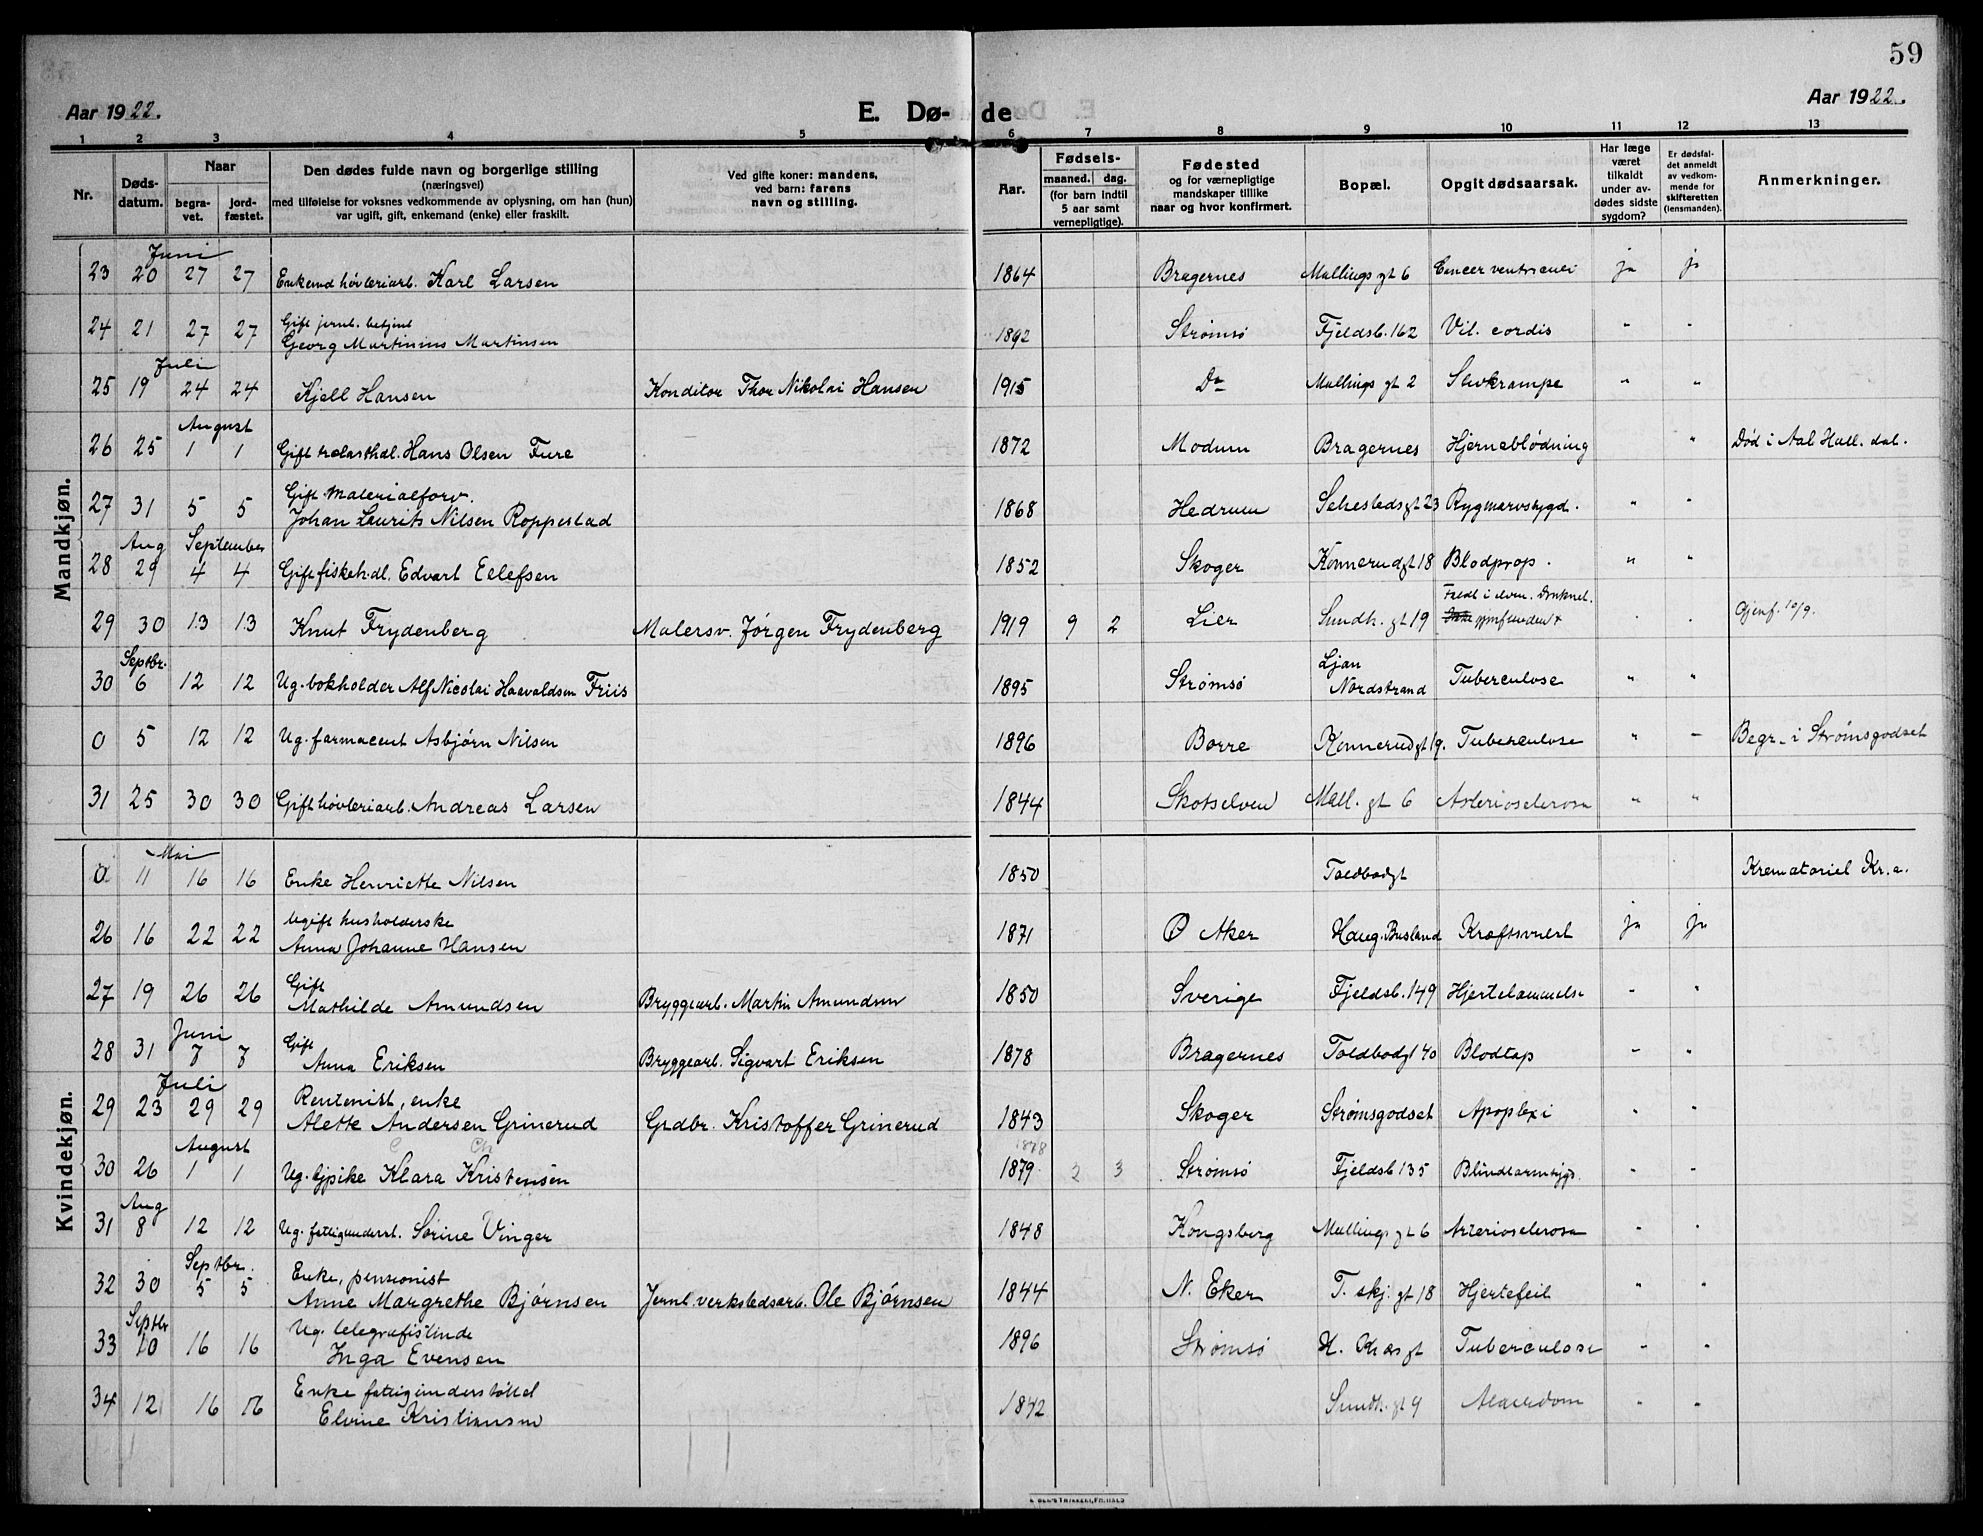 59
Aar 1922.
E. Dø- de
Aar 1922.
1 2 3 4 5 6 7 8 9 10 11 12 13
Nr.
Døds-
datum.
Naar
begra-
vet.
jord-
fæstet.
Den dødes fulde navn og borgerlige stilling
(næringsvei)
med tilføielse for voksnes vedkommende av oplysning, om han (hun)
var ugift, gift, enkemand (enke) eller fraskilt.
Ved gifte koner: mandens,
ved barn: farens
navn og stilling.
Aar.
Fødsels-
maaned. dag.
(for barn indtil
5 aar samt
vernepligtige).
Fødested
og for værnepligtige
mandskaper tillike
naar og hvor konfirmert.
Bopæl.
Opgit dødsaarsak.
Har læge
været
tilkaldt
under av-
dødes sidste
sygdom?
Er dødsfal-
det anmeldt
av vedkom-
mende for
skifteretten
(lensmanden).
Anmerkninger.
Mandkjøn.
Juni
23 20 27 27 Enkemd høvleriarb. Karl Larsen 1864 Bragernes Mallings gt 6 Cancer ventriculi ja ja
Gift jernb. betjent
24 21 27 27 Georg Martinius Martinsen 1892 Strømsø Fjeldsb. 162 Vit. cordis " "
Juli
25 19 24 24 Kjell Hansen Konditor Thor Nikolai Hansen 1915 Do Mallings gt 2 " "
August
26 25 1 1 Gift trælasthdl. Hans Olsen Fure 1872 Modum Bragernes Hjerneblødning " Død i Aal Hall. dal.
Gift Materialforv.
27 31 5 5 Johan Laurits Nilsen Roppestad 1868 Hedrum Sehestedsgt 23 Rygmarvsygd. "
Aug September
28 29 4 4 Gift fiskehdl. Edvart Ellefsen 1852 Skoger Konnerudgt 18 Blodprop. " "
Faldt i elven. Druknet.
29 30 13 13 Knut Frydenberg Malersv. Jørgen Frydenberg 1919 9 2 Lier Sundh. gt 19 Ikke gjenfunden + " " Gjenf. 10/9.
Septbr.
30 6 12 12 Ug. bokholder Alf Nicolai Haavaldsen Friis 1895 Strømsø Ljan Nordstrand Tuberculose " "
0 5 12 12 Ug. farmaceut Asbjørn Nilsen 1896 Borre Konnerudgt 19. Tuberculose " - Begr. i Strømsgodset
31 25 30 30 Gift høvleriarb. Andreas Larsen 1844 Skotselven Mall. gt 6 Asterioselerosa " "
Kvindekjøn.
Mai
0 11 16 16 Enke Henriette Nilsen 1850 Toldbodgt Krematoriet Kr.a.
Ugift husholderske
26 16 22 22 Anna Johanne Hansen 1871 Ø Aker Haug. Busland Kræftsvulst ja ja
Gift
27 19 26 26 Mathilde Amundsen Bryggearb. Martin Amundsen 1850 Sverige Fjeldsb. 149 Hjertelammelse - "
Juni
Gift
28 31 7 7 Anna Eriksen Bryggearb. Sigvart Eriksen 1878 Bragernes Toldbodgt 40 Blodtap - "
Juli
Rentenist, enke
29 23 29 29 Alette Andersen Grinerud Grdbr. Kristoffer Grinerud 1843 Skoger Strømsgodset Apoplexi " "
August C Ch 1878
30 26 1 1 Ug. tjpike Klara Kristensen 1879 2 3 Strømsø Fjeldsb 135 - -
Aug
31 8 12 12 Ug. fattigunderst. Sørine Vinger 1848 Kongsberg Mallings gt 6 Arterioselerosa " "
Septbr.
Enke, pensionist
32 30 5 5 Anne Margrethe Bjørnsen Jernb. verkstedsarb. Ole Bjørnsen 1844 N. Eker T. skj. gt 18 Hjertefeil " "
Septbr
Ug. telegrafistinde
33 10 16 16 Inga Evensen 1896 Strømsø Tuberculose " "
Enke fattigunderstøttet
34 12 16 16 Elvine Kristiansen 1842 Sundh. gt 9 Alderdom " "